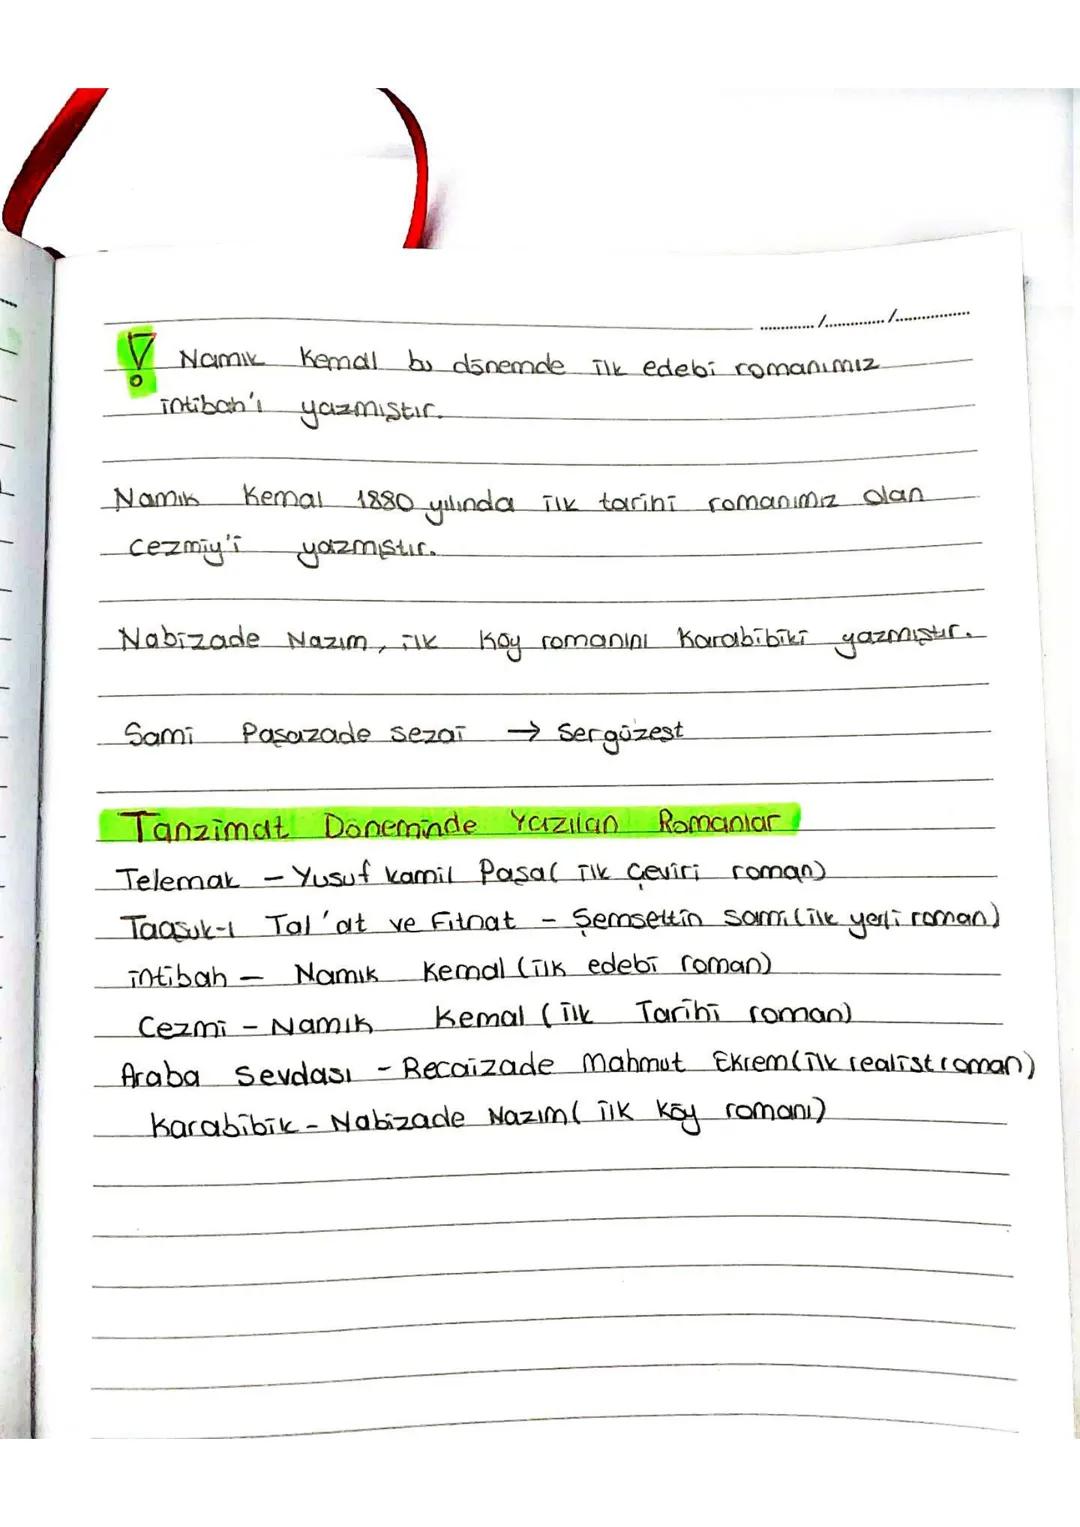 ............../............../..................
! Namık Kemal bu dönemde ilk edebi romanımız
intibah'ı yazmıştır.
Namık Kemal 1880 yılında ilk tarihi romanımız olan
Cezmiy'i yazmıştır.
Nabizade Nazım, ilk Köy romanını Karabibiki yazmıştır.
Sami Paşazade Sezai → Sergüzeşt
Tanzimat Döneminde Yazılan Romanlar
Telemak - Yusuf Kamil Paşa( ilk Çeviri roman)
Taaşuk-ı Tal'at ve Fitnat - Şemsettin Sami(ilk yerli roman)
intibah - Namık Kemal (ilk edebi roman)
Cezmi - Namık Kemal (ilk Tarihi roman)
Araba Sevdası - Recaizade Mahmut Ekrem(ilk realist roman)
Karabibik - Nabizade Nazım( ilk Köy romanı)